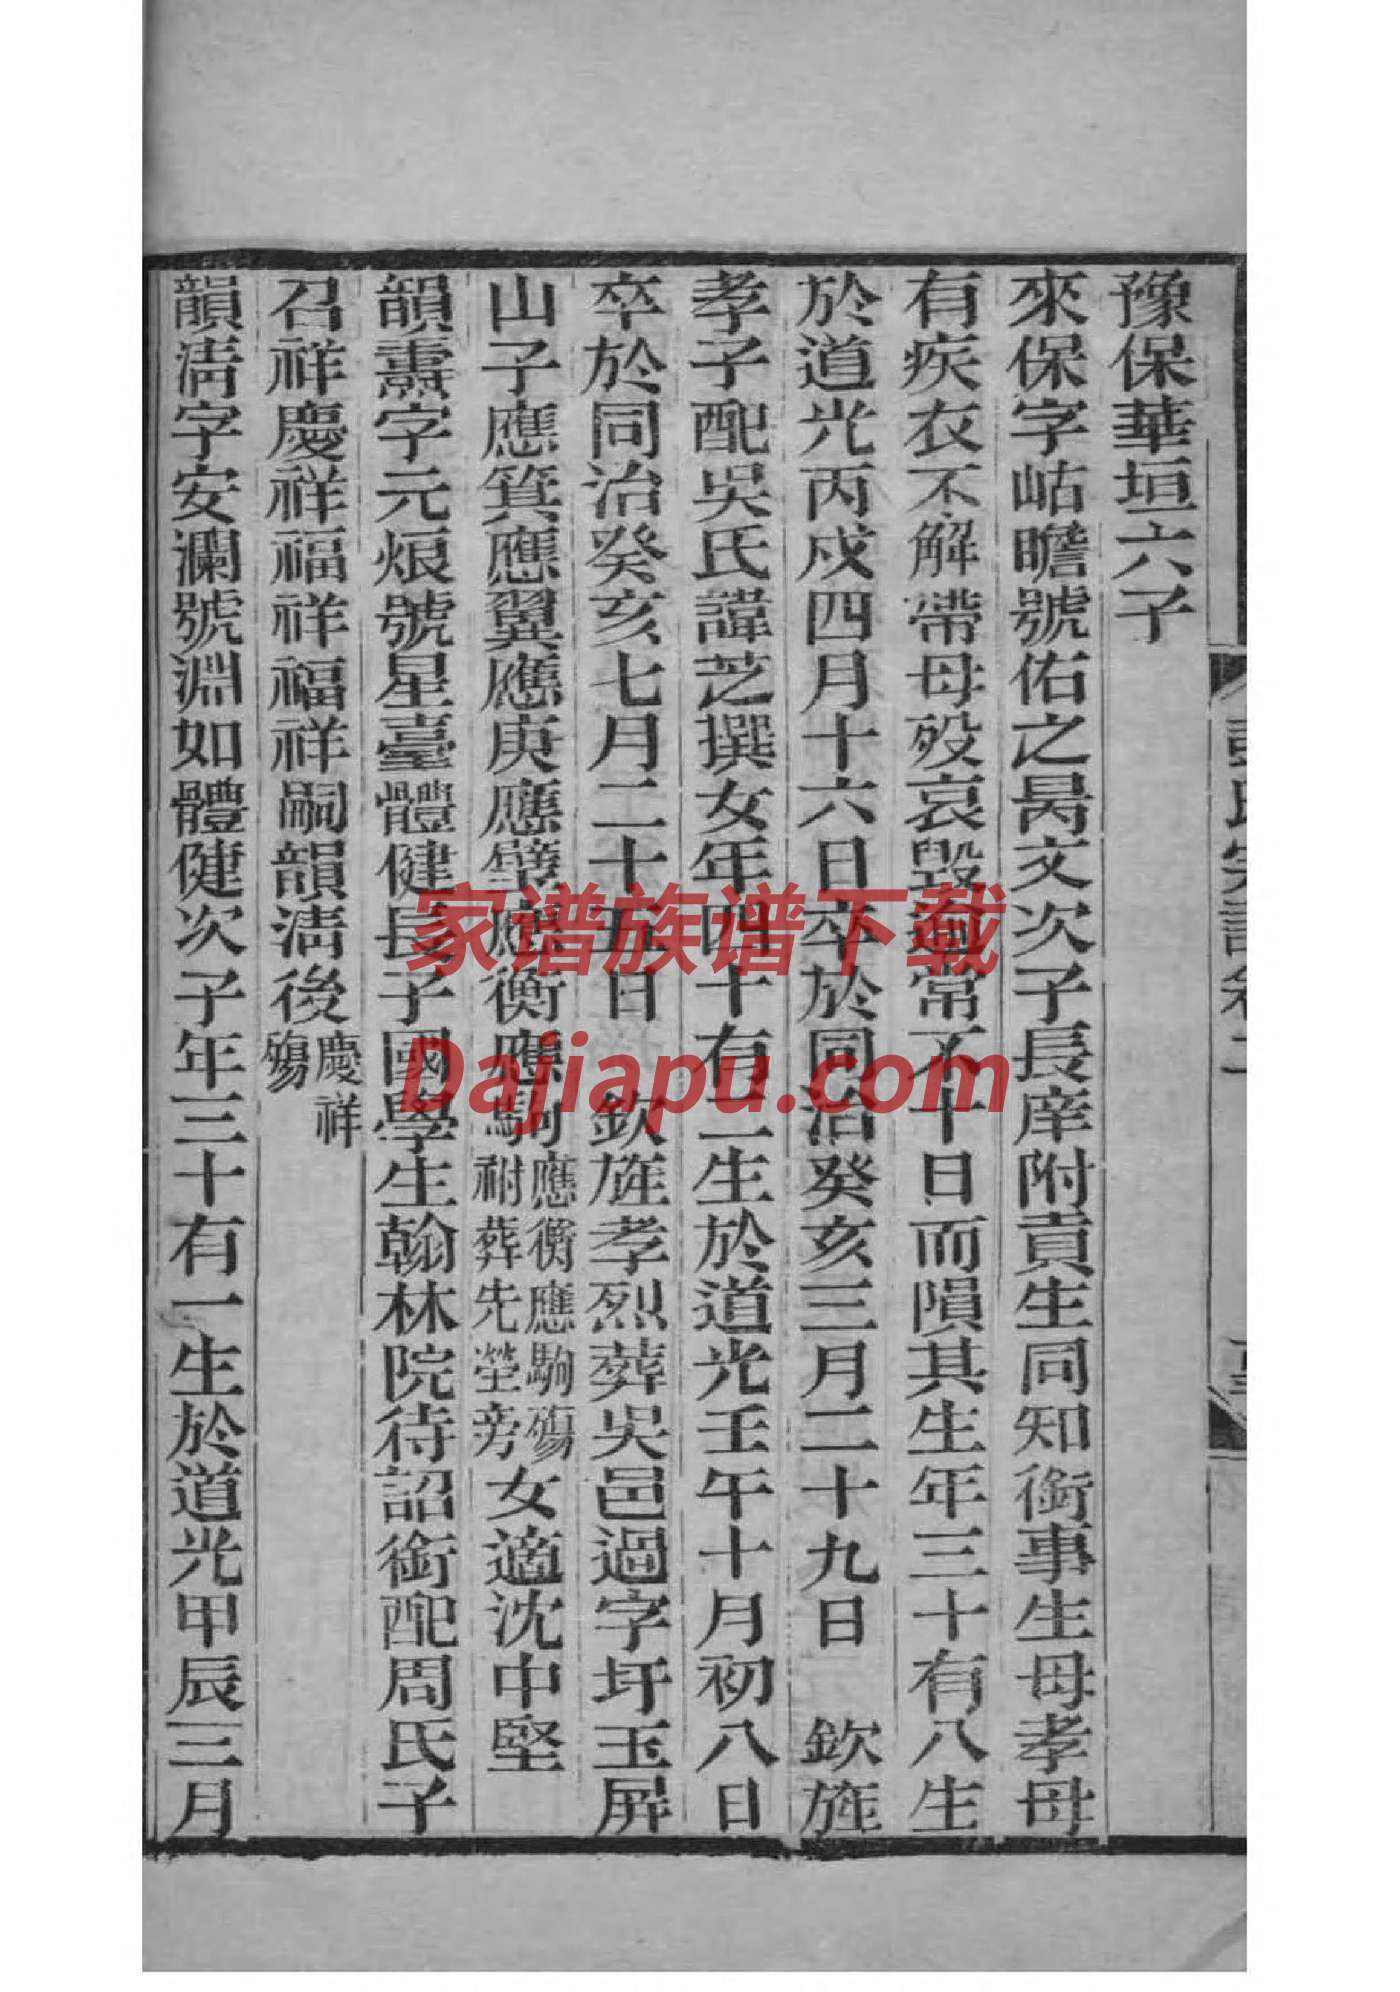 豫保華垣六子
來保字岵瞻號佑之昺文次子長庠附貢生同知銜事生母孝母
有疾衣不解帶母歿哀毀過常不十日而隕其生年三十有八生
於道光丙戌四月十六日卒於同治癸亥三月二十九日　欽旌
孝子配吳氏諱芝撰女年四十有二生於道光壬午十月初八日
卒於同治癸亥七月二十五日　欽旌孝烈葬吳邑過字圩玉屏
山子應箕應翼應庚應璧應衡應駒應衡應駒殤祔葬先塋旁女適沈中堅
韻燾字元烺號星臺體健長子國學生翰林院待詔銜配周氏子
召祥慶祥福祥福祥嗣韻淸後慶祥殤
韻淸字安瀾號淵如體健次子年三十有一生於道光甲辰三月
彭氏宗譜卷二
家谱族谱下载
Dajiapu.com